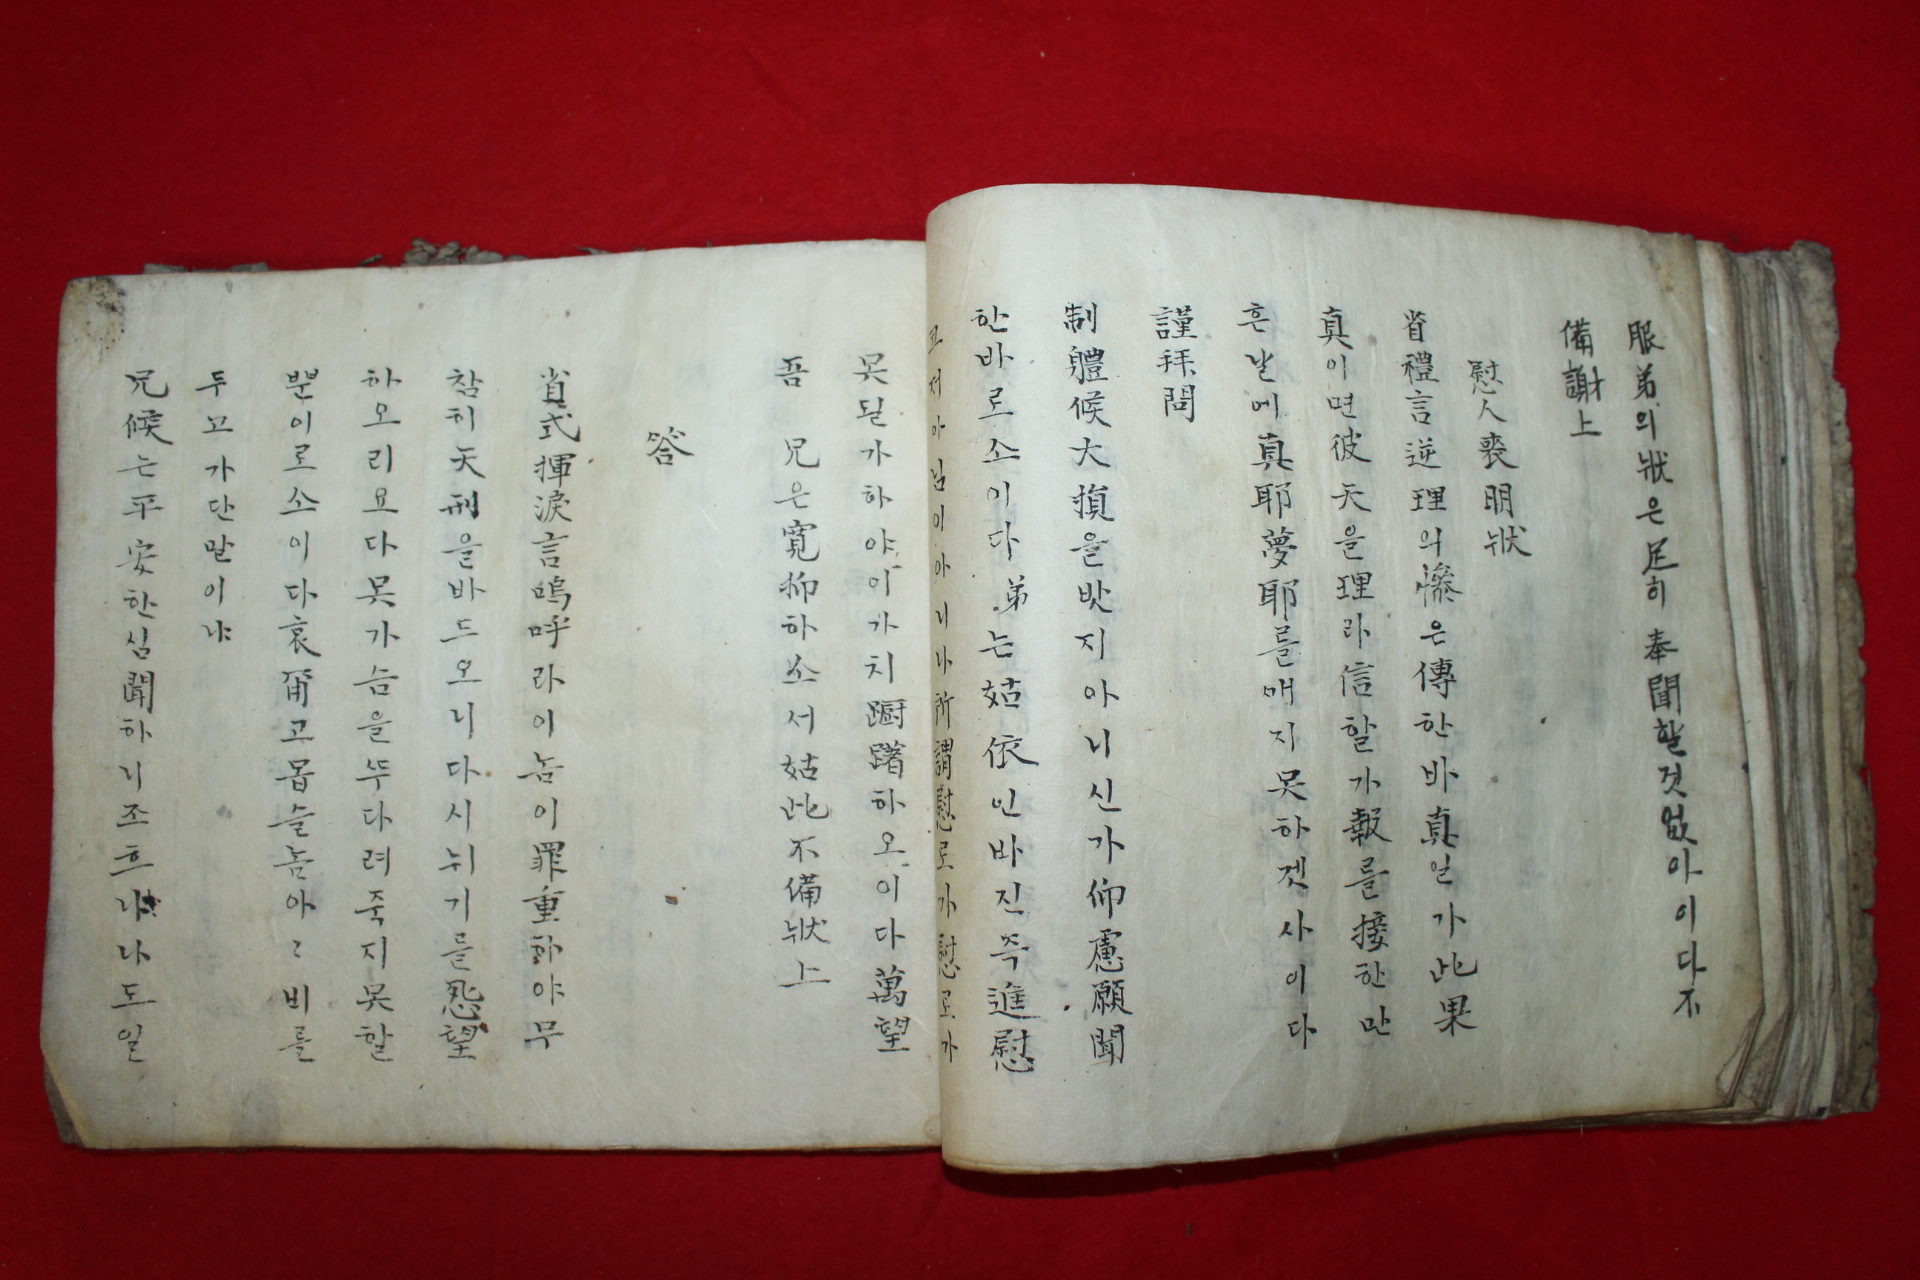 服弟의狀은足히 奉聞할것없아이다不
備謝上
慰人喪明狀
省禮言逆理의慘은傳한바真일가此果
真이면彼天을理라信할가報를接한만
흔날에真耶夢耶를매지못하겟사이다
謹拜問
制體候大損을밧지아니신가仰慮願聞
한바로소이다弟는姑依인바진즉進慰
코저아님이아니나所謂慰로가慰로가
못될가하야이가치躕躇하오이다萬望
吾 兄은寬抑하쇼서姑此不備狀上
答
省式揮淚言嗚呼라이놈이罪重하야무
참히天刑을바드오니다시뉘기를怨望
하오리요다못가슴을뚜다려죽지못할
뿐이로소이다哀甭고몹슬놈아〻비를
두고가단말이냐
兄候는平安한심聞하니조흐나나도일